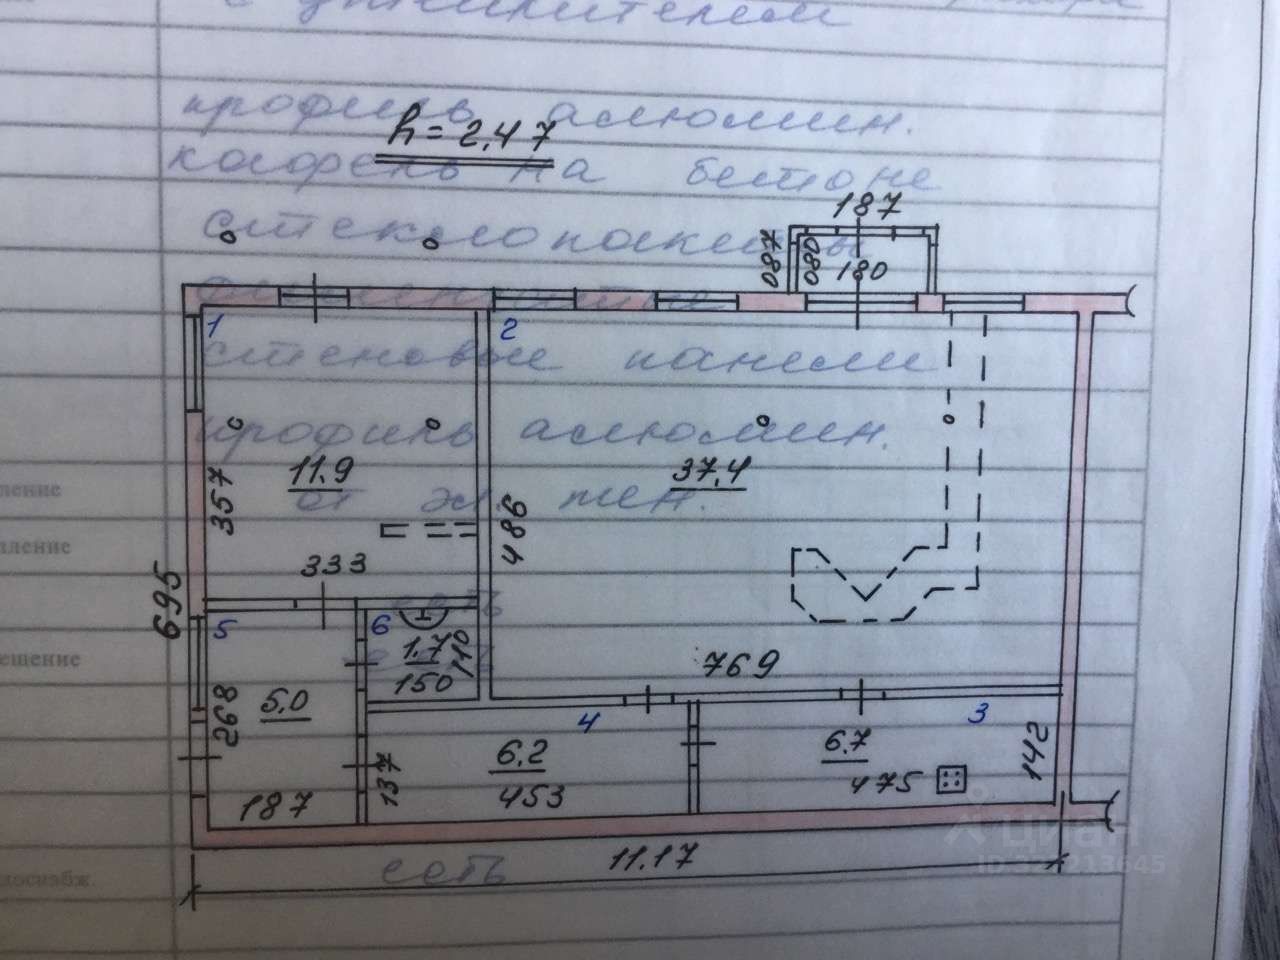 с утеплителем
профиль алюмин.
h = 2,47
кафель на бетоне
стеклопакеты
187
087
080
180
1
2
стеновые панели
профиль алюмин.
11.9
37,4
357
486
от эл. тен.
ление
333
695
5
6
есть
1.7
110
ещение
769
150
268
5,0
4
3
6.2
6.7
142
137
475
187
453
11.17
циан
ID:32
213645
доснабж.
сеть